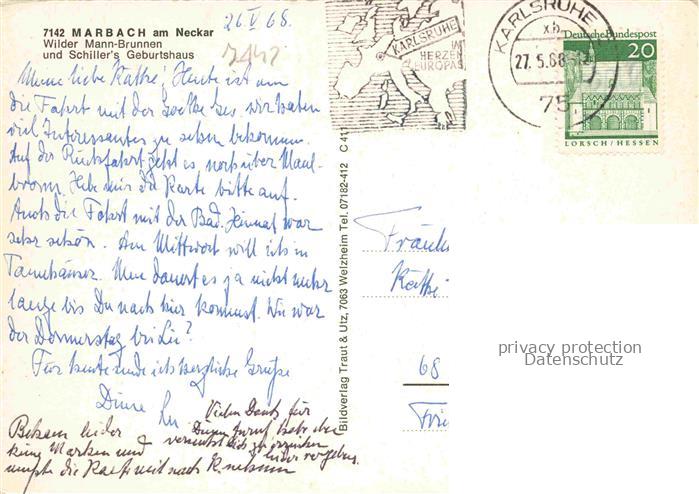 7142 MARBACH am Neckar
Wilder Mann-Brunnen
und Schiller's Geburtshaus
26.V 68.
7142
Meine liebe Käthe! Heute ist
die Fahrt mit der Goethe Ges. wir haben
viel Interessantes zu sehen bekommen.
Auf der Rückfahrt geht es noch über Maul-
bronn. Hebe mir die Karte bitte auf.
Auch die Fahrt mit der Bad. Heimat war
sehr schön. Am Mittwoch will ich in
Tannhäuser. Nun dauert es ja nicht mehr
lange bis Du nach hier kommst. Wie war
der Donnerstag bei
Für heute sende ich herzliche Grüße
Deine
Vielen Dank für
Bekam leider
keine Marken und
mußte die Karte mit nach K. nehmen
KARLSRUHE
IM
HERZEN
EUROPAS
KARLSRUHE
xb
27.5.68
75
Deutsche Bundespost
20
LORSCH/HESSEN
Bildverlag Traut & Utz, 7063 Welzheim Tel. 07182-412 C 411
Fräule
Käthe
68
privacy protection
Datenschutz